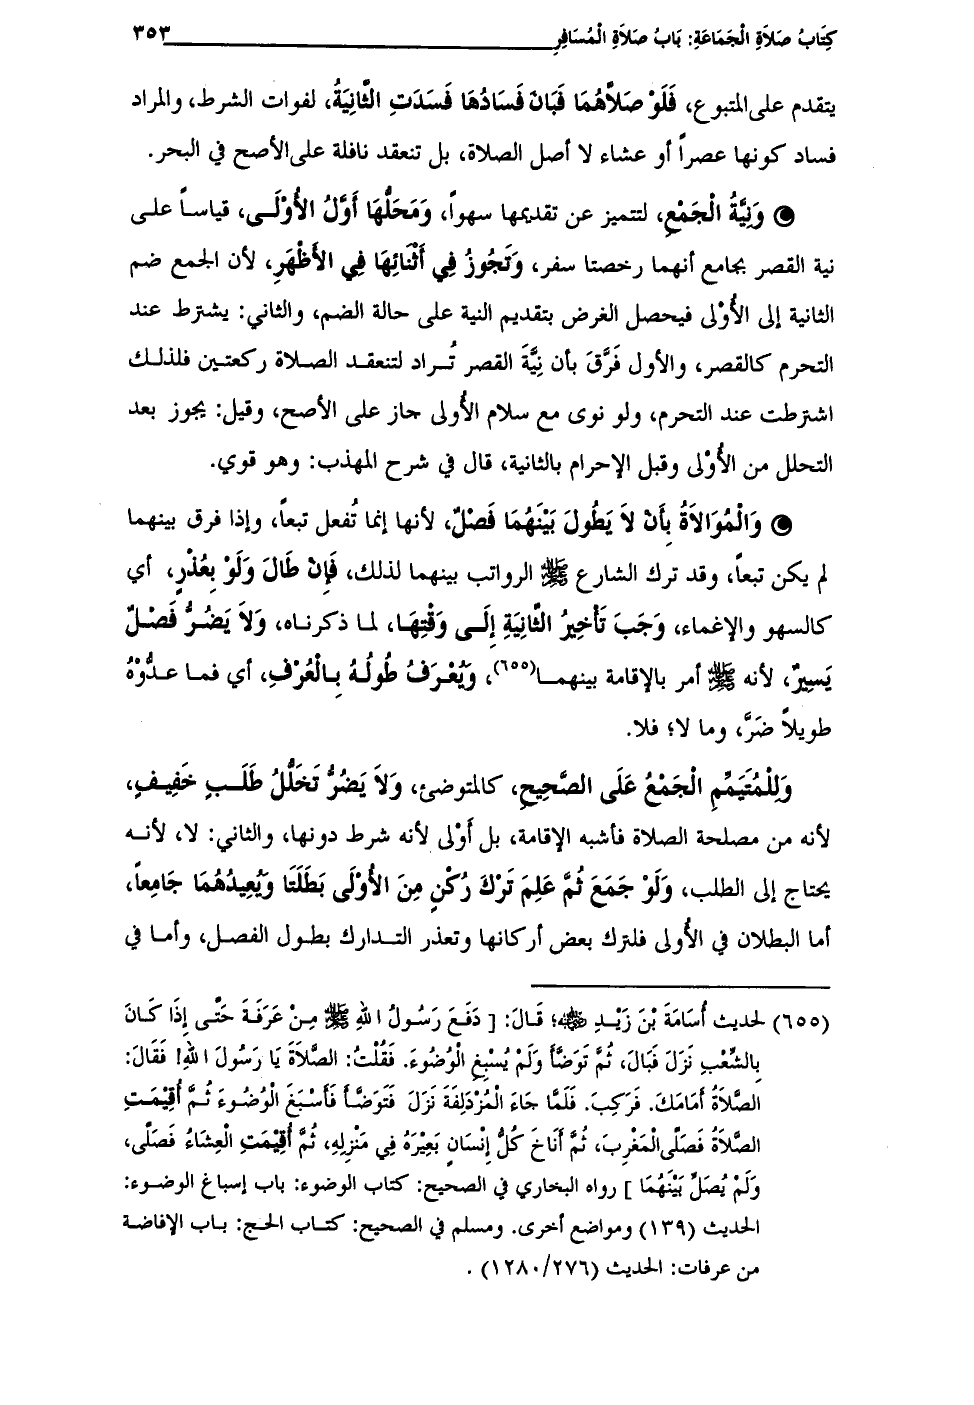 كِتَابُ صَلاَةِ الْجَمَاعَةِ: بَابُ صَلاَةِ الْمُسَافِرِ ٣٥٣
يتقدم على المتبوع، فَلَوْ صَلاَّهُمَا فَبَانَ فَسَادُهَا فَسَدَتِ الثَّانِيَةُ، لفوات الشرط، والمراد
فساد كونها عصراً أو عشاء لا أصل الصلاة، بل تنعقد نافلة على الأصح في البحر.
وَنِيَّةُ الْجَمْعِ، لتتميز عن تقديمها سهواً، وَمَحَلُّهَا أَوَّلُ الأُوْلَى، قياساً على
نية القصر بجامع أنهما رخصتا سفر، وَتَجُوزُ فِي أَثْنَائِهَا فِي الأَظْهَرِ، لأن الجمع ضم
الثانية إلى الأُوْلى فيحصل الغرض بتقديم النية على حالة الضم، والثاني: يشترط عند
التحرم كالقصر، والأول فَرَّقَ بأن نِيَّةَ القصر تُراد لتنعقد الصلاة ركعتين فلذلك
اشترطت عند التحرم، ولو نوى مع سلام الأُولى جاز على الأصح، وقيل: يجوز بعد
التحلل من الأُوْلى وقبل الإحرام بالثانية، قال في شرح المهذب: وهو قوي.
وَالْمُوَالاَةُ بِأَنْ لاَ يَطُولَ بَيْنَهُمَا فَصْلٌ، لأنها إنما تُفعل تبعاً، وإذا فرق بينهما
لم يكن تبعاً، وقد ترك الشارع ﷺ الرواتب بينهما لذلك، فَإِنْ طَالَ وَلَوْ بِعُذْرٍ، أي
كالسهو والإغماء، وَجَبَ تَأْخِيرُ الثَّانِيَةِ إِلَى وَقْتِهَا، لما ذكرناه، وَلاَ يَضُرُّ فَصْلٌ
يَسِيرٌ، لأنه ﷺ أمر بالإقامة بينهما(٦٥٥)، وَيُعْرَفُ طُولُهُ بِالْعُرْفِ، أي فما عدُّوْهُ
طويلاً ضَرَّ، وما لا؛ فلا.
وَلِلْمُتَيَمِّمِ الْجَمْعُ عَلَى الصَّحِيحِ، كالمتوضئ، وَلاَ يَضُرُّ تَخَلُّلُ طَلَبٍ خَفِيفٍ،
لأنه من مصلحة الصلاة فأشبه الإقامة، بل أَوْلى لأنه شرط دونها، والثاني: لا، لأنه
يحتاج إلى الطلب، وَلَوْ جَمَعَ ثُمَّ عَلِمَ تَرْكَ رُكْنٍ مِنَ الأُوْلَى بَطَلَتَا وَيُعِيدُهُمَا جَامِعاً،
أما البطلان في الأُولى فلترك بعض أركانها وتعذر التدارك بطول الفصل، وأما في
(٦٥٥) لحديث أُسَامَةَ بْنَ زَيْدٍ ﷺ؛ قَالَ: [ دَفَعَ رَسُولُ اللهِ ﷺ مِنْ عَرَفَةَ حَتَّى إِذَا كَانَ
بِالشِّعْبِ نَزَلَ فَبَالَ، ثُمَّ تَوَضَّأَ وَلَمْ يُسْبِغِ الْوُضُوءَ. فَقُلْتُ: الصَّلاَةَ يَا رَسُولَ اللهِ! فَقَالَ:
الصَّلاَةُ أَمَامَكَ. فَرَكِبَ. فَلَمَّا جَاءَ الْمُزْدَلِفَةَ نَزَلَ فَتَوَضَّأَ فَأَسْبَغَ الْوُضُوءَ ثُمَّ أُقِيْمَتِ
الصَّلاَةُ فَصَلَّى الْمَغْرِبَ، ثُمَّ أَنَاخَ كُلُّ إِنْسَانٍ بَعِيْرَهُ فِي مَنْزِلِهِ، ثُمَّ أُقِيْمَتِ الْعِشَاءُ فَصَلَّى،
وَلَمْ يُصَلِّ بَيْنَهُمَا ] رواه البخاري في الصحيح: كتاب الوضوء: باب إسباغ الوضوء:
الحديث (١٣٩) ومواضع أخرى. ومسلم في الصحيح: كتاب الحج: باب الإفاضة
من عرفات: الحديث (١٢٨٠/٢٧٦).